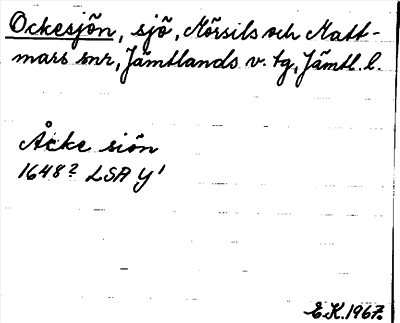 Ockesjön, sjö, Mörsils och Matt-
mars snr, Jämtlands v. tg, Jämtl. l.
Åcke siön
1648? LSA Y'
E.K. 1967.